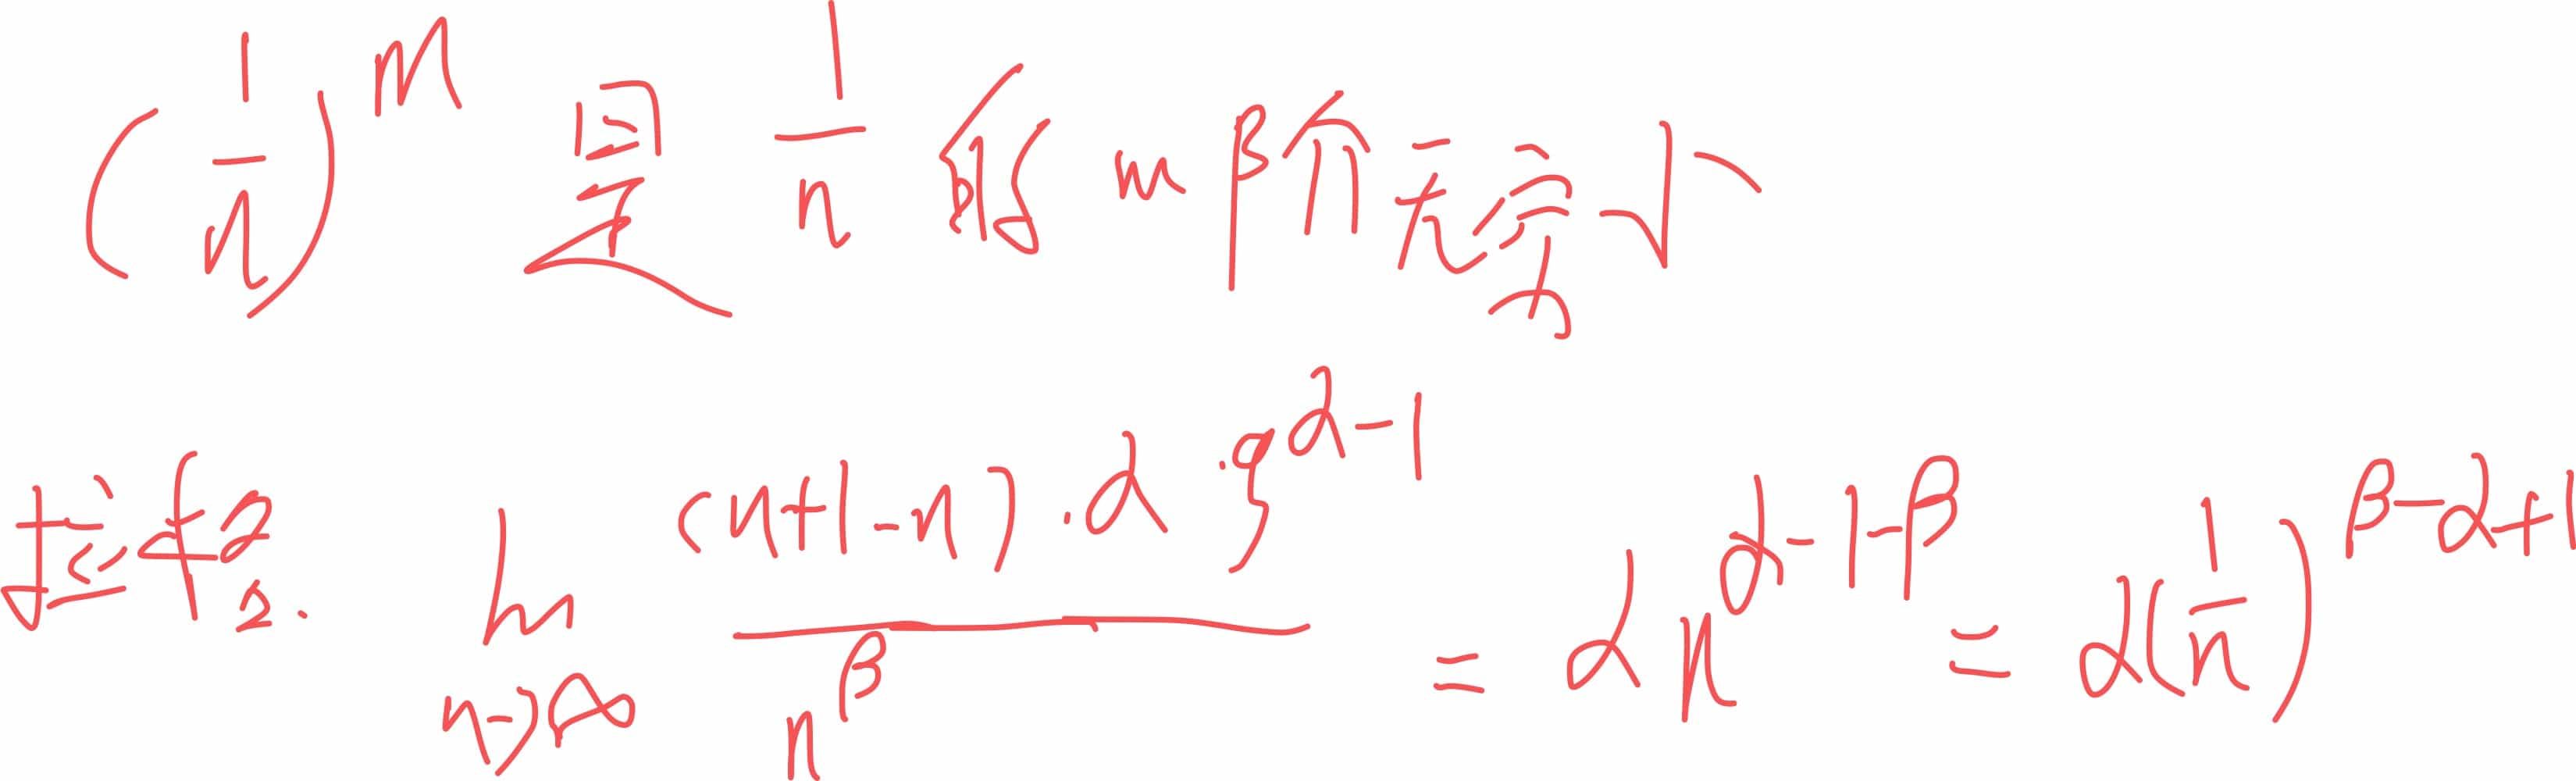 (1/n)^m 是 1/n 的 m 阶无穷小
拉中2. lim n→∞ (n+1-n)·α·ξ^(α-1) / n^β = α n^(α-1-β) = α(1/n)^(β-α+1)